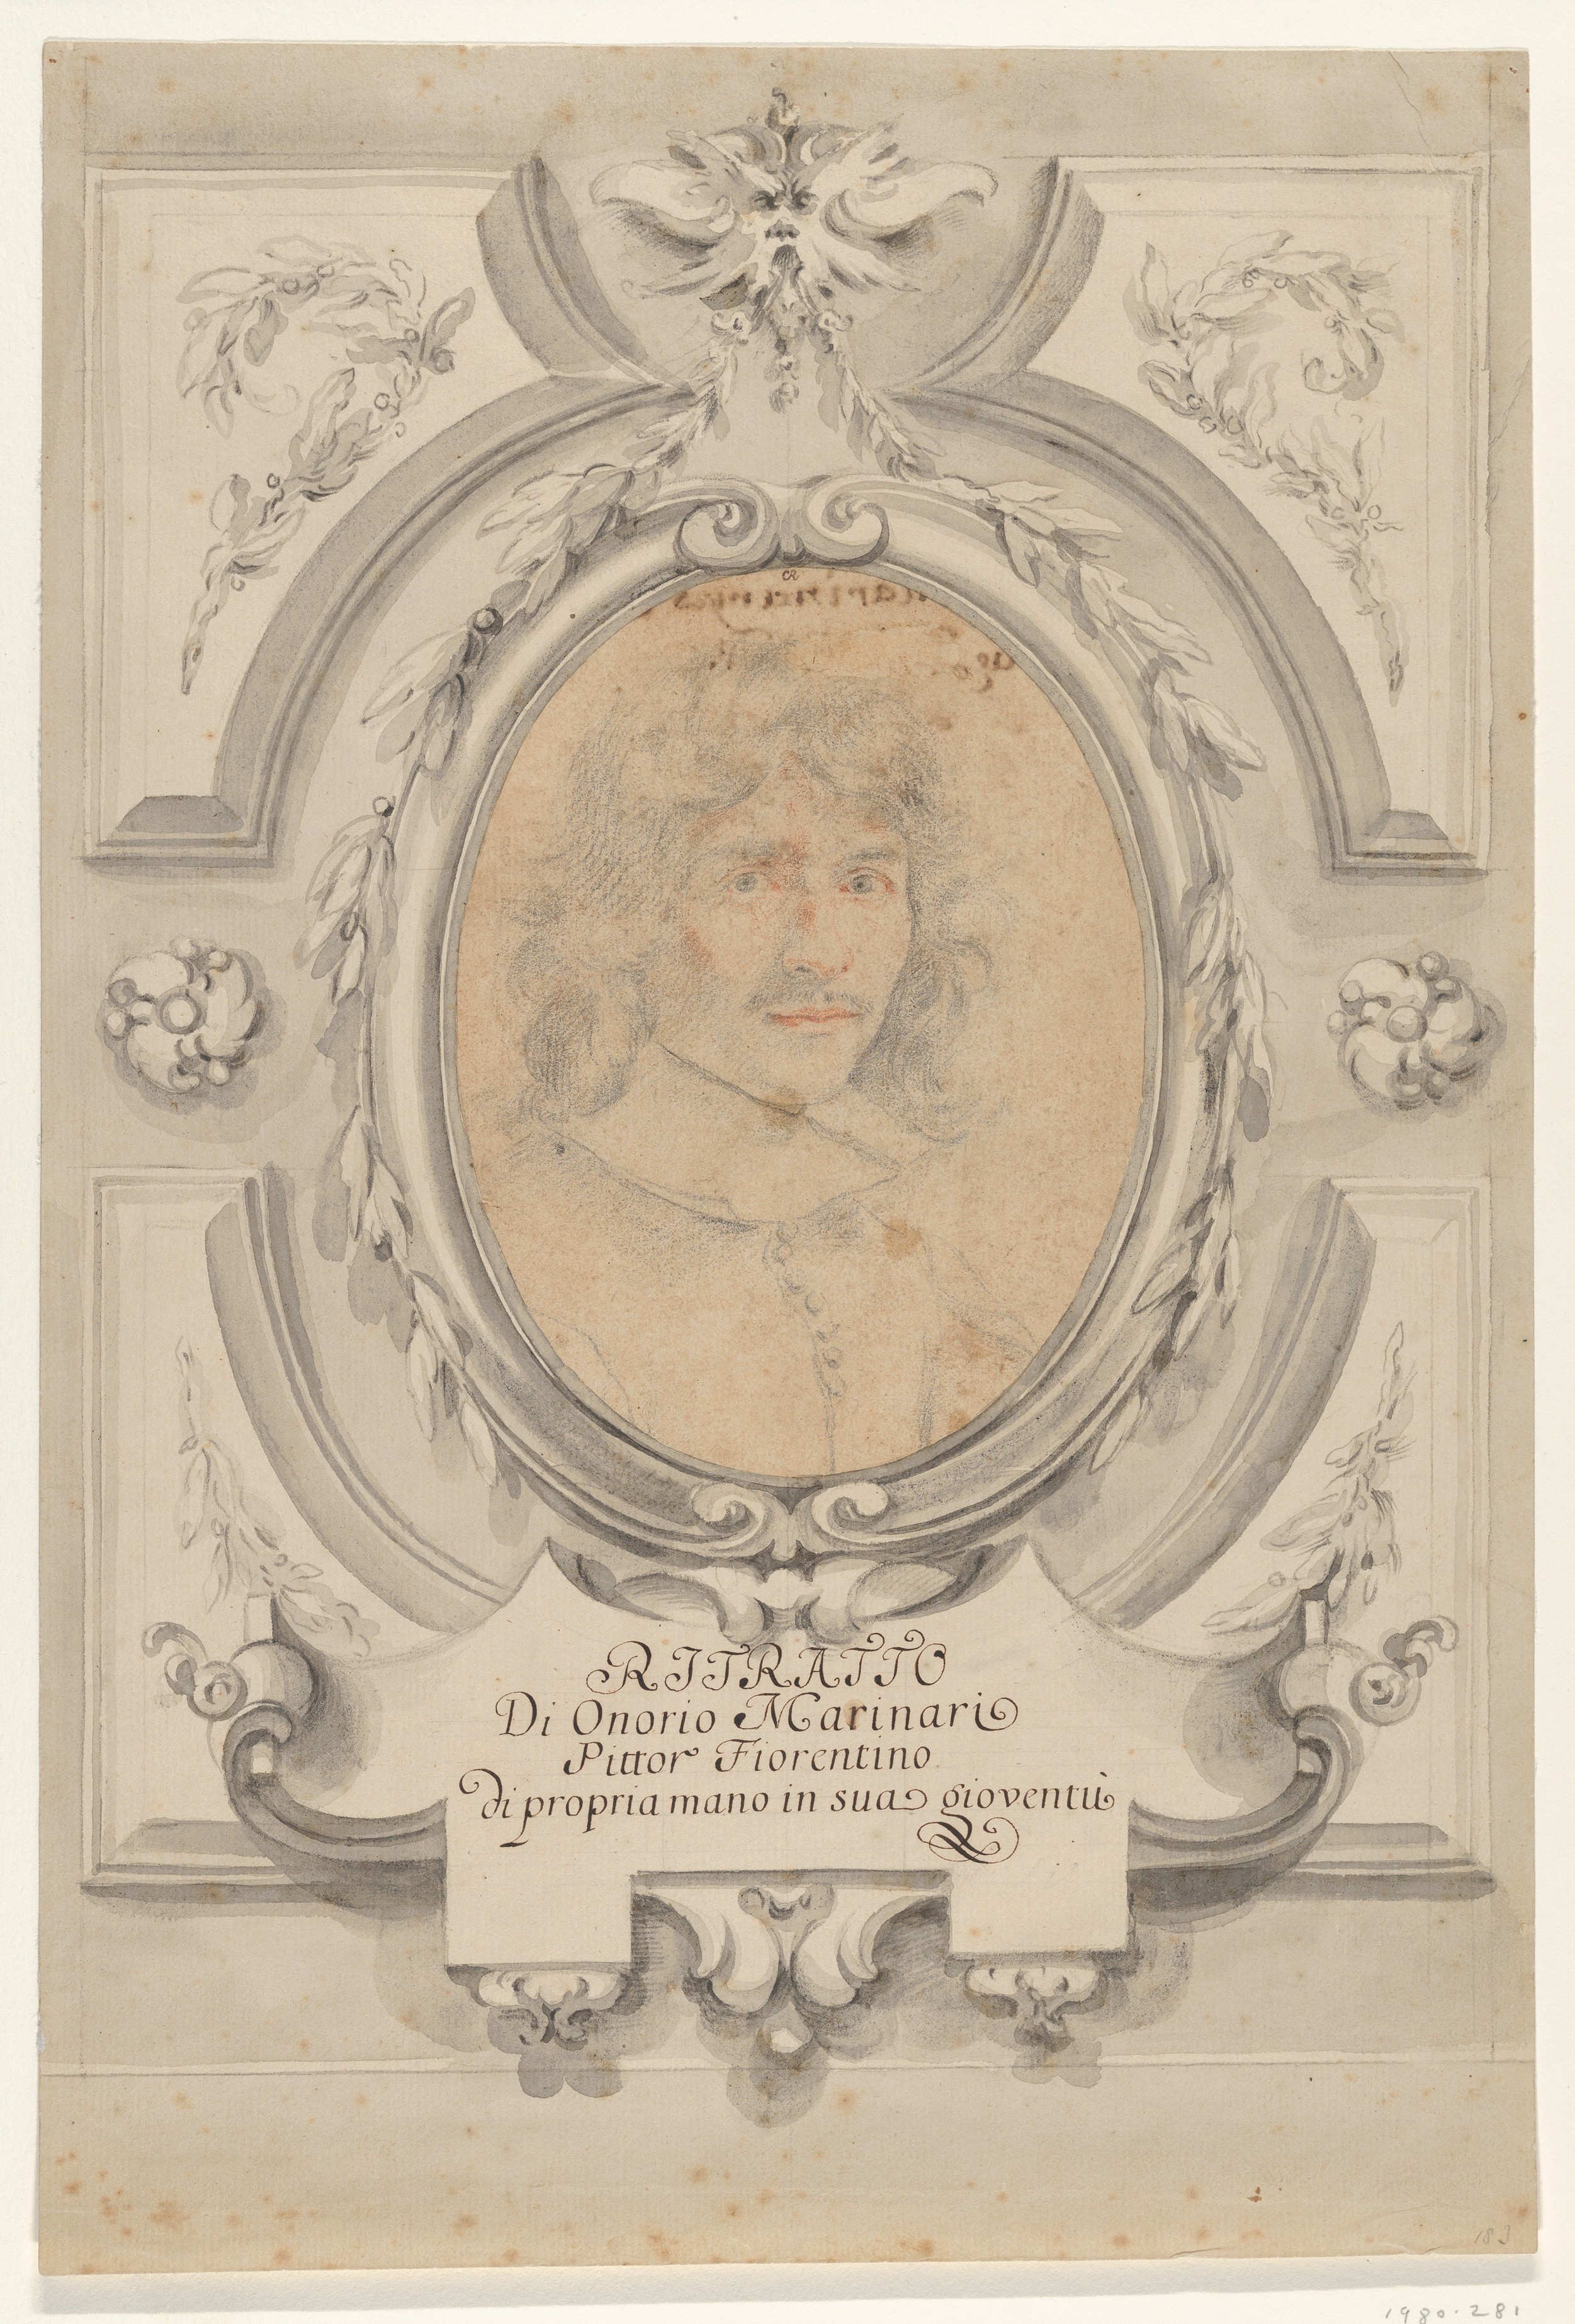 RITRATTO
Di Onorio Marinari
Pittor Fiorentino
di propria mano in sua gioventù
183
1980.281